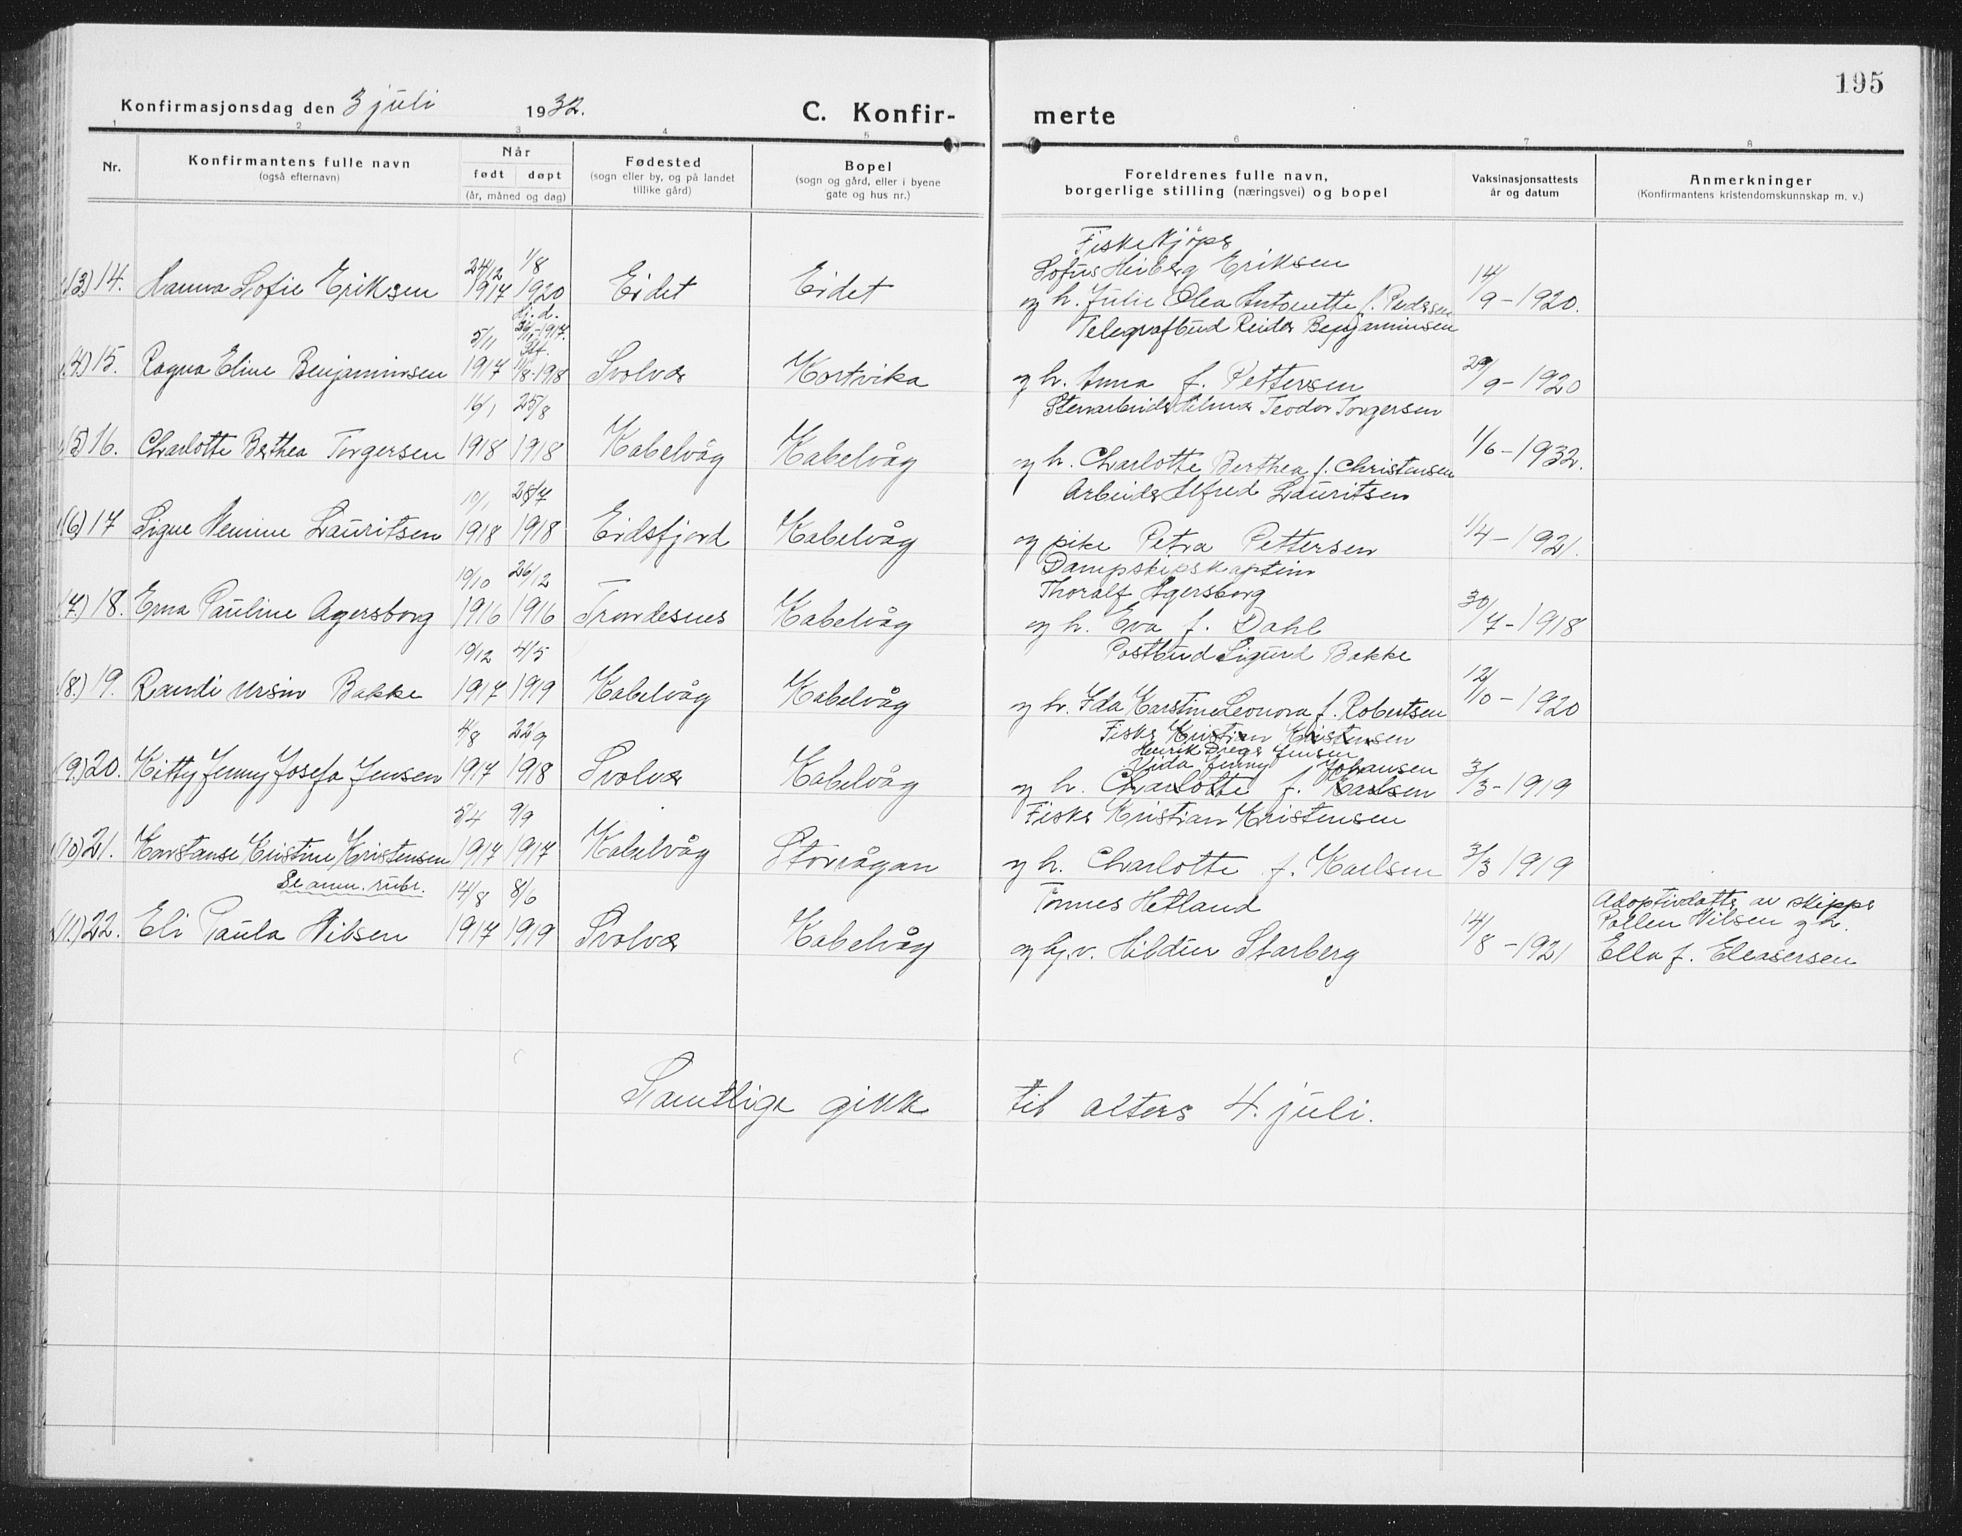 195
Konfirmasjonsdag den 3 juli 1932. C. Konfir- merte
1 2 3 4 5 6 7 8
Nr.
Konfirmantens fulle navn
(også efternavn)
Når
født døpt
(år, måned og dag)
Fødested
(sogn eller by, og på landet
tillike gård)
Bopel
(sogn og gård, eller i byene
gate og hus nr.)
Foreldrenes fulle navn,
borgerlige stilling (næringsvei) og bopel
Vaksinasjonsattests
år og datum
Anmerkninger
(Konfirmantens kristendomskunnskap m. v.)
Fiskekjøper
24/12 1/8 Sofus Heiberg Eriksen 14
(3) 14. Hanna Sofie Eriksen 1917 1920 Eidet Eidet og h. Julie Olea Antonette f. Pedersen /9-1920.
5/11 Telegrafbud Reidar Benjaminsen
(4) 15. Ragna Eline Benjaminsen 1917 11/8-1918 Svolvær Kortvika og h. Anna f. Pettersen 29/9-1920
16/1 25/8 Stenarbeider Teodor Torgersen
(5) 16. Charlotte Berthea Torgersen 1918 1918 Kabelvåg Kabelvåg og h. Charlotte Berthea f. Christensen 1/6-1932.
10/1 28/7 Arbeider Alfred Lauritsen
(6) 17 Signe Lauritsen 1918 1918 Eidsfjord Kabelvåg og pike Petra Pettersen 1/4-1921.
19/10 26/12 Dampskipskaptein
Thoralf Agersborg
(7.) 18. Erna Pauline Agersborg 1916 1916 Trondesnes Kabelvåg og h. Eva f. Dahl 30/7-1918
10/12 4/5 Postbud Sigurd Bakke
(8.) 19. Randi Ursin Bakke 1917 1919 Kabelvåg Kabelvåg og h. Ida Karstine Leonora f. Robertsen 12/10-1920
4/8 22/9 Fisker Kristian Kristensen
Henrik Dreyer Jensen
Vida Jenny Johansen
(9.) 20. Kitty Jenny Josefa Jensen 1917 1918 Svolvær Kabelvåg og h. Charlotte f. Karlsen 3/3-1919
5/4 9/9 Fisker Kristian Kristensen
(10) 21. Konstanse Kristine Kristensen 1917 1917 Kabelvåg Storvågan og h. Charlotte f. Karlsen 3/3 1919
Se anm. rubr. 14/8 8/6 Tønnes Hetland Adoptivdatter av skipper
(11.) 22. Eli Paula Nilsen 1917 1919 Svolvær Kabelvåg og gj.v. Hildur Starberg 14/8-1921 Pollen Nilsen og h.
Ella f. Eleasersen
Samtlige gikk til alters 4. juli.